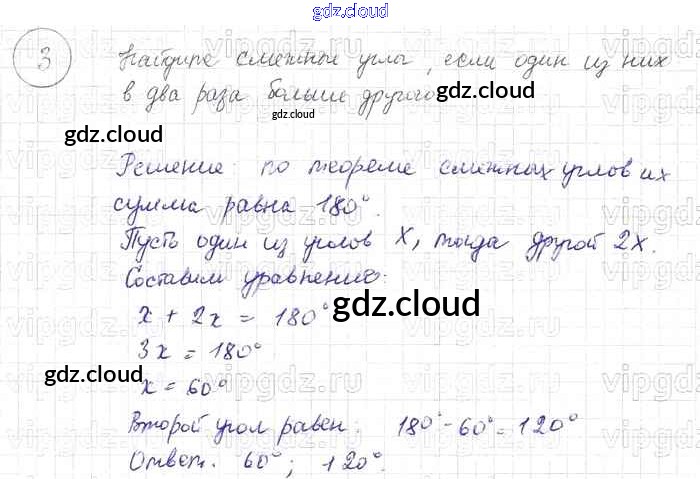 gdz.cloud
3 Найдите смежные углы, если один из них
в два раза больше другого
gdz.cloud
gdz.cloud
gdz.cloud
Решение: по теореме смежных углов их
сумма равна 180°.
Пусть один из углов x, тогда другой 2x.
Составим уравнение:
x + 2x = 180°
gdz.cloud
3x = 180°
gdz.cloud
x = 60°
Второй угол равен: 180° - 60° = 120°
Ответ. 60°; 120°.